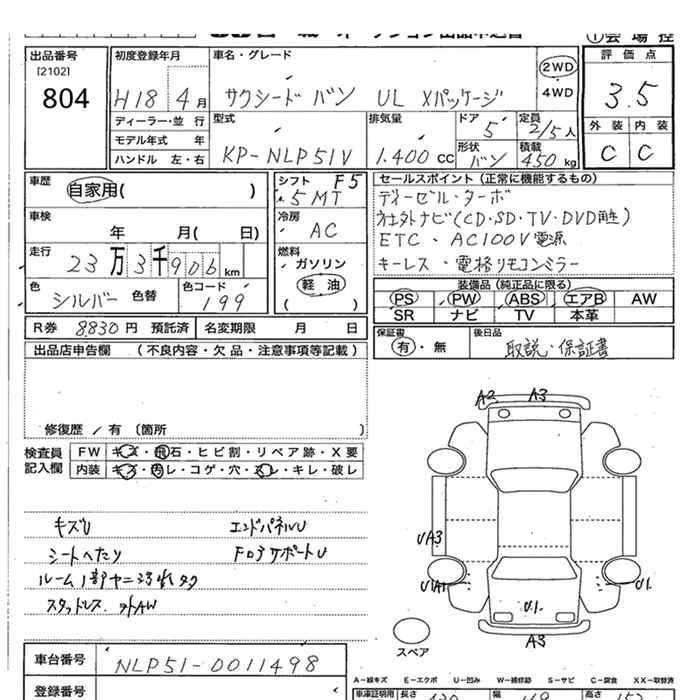 出品番号
[2102]
804
初度登録年月
H18 4月
ディーラー・並行
モデル年式 年
ハンドル 左・右
車名・グレード
サクシード バン UL Xパッケージ
2WD
4WD
評価点
3.5
型式
KP-NLP51V
排気量
1.400 CC
ドア
5
定員
2/5人
形状
バン
積載
450kg
外装 内装
C C
車歴
自家用( )
車検
年 月( 日)
走行
23万3千906km
色
シルバー 色替
色コード
199
シフト F5
5MT
冷房
AC
燃料
ガソリン
軽油
( )
R券 8830円 預託済
名変期限 月 日
セールスポイント (正常に機能するもの)
ディーゼル・ターボ
社外ナビ(CD・SD・TV・DVD再生)
ETC・AC100V電源
キーレス・電格リモコンミラー
装備品 (純正品に限る)
PS PW ABS エアB AW
SR ナビ TV 本革
保証書
有・無
後日品
取説・保証書
出品店申告欄 (不良内容・欠品・注意事項等記載)
修復歴 / 有 (箇所 )
検査員
記入欄
FW キズ・飛石・ヒビ割・リペア跡・X要
内装 キズ・汚レ・コゲ・穴・スレ・キレ・破レ
キズU エンドパネルU
シートへたり
スタッドレス 外AW
A2 A3
UA3
UA1 U1
U1
A3
スペア
車台番号
NLP51-0011498
登録番号
A－線キズ E－エクボ U－凹み W－補修跡 S－サビ C－腐食 XX－取替済
車庫証明用 長さ 幅 高さ